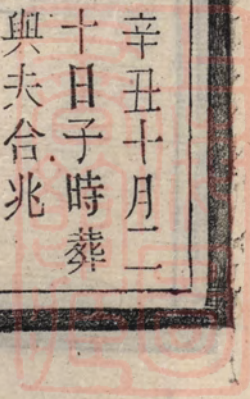 辛丑十月二
十日子時葬
與夫合兆